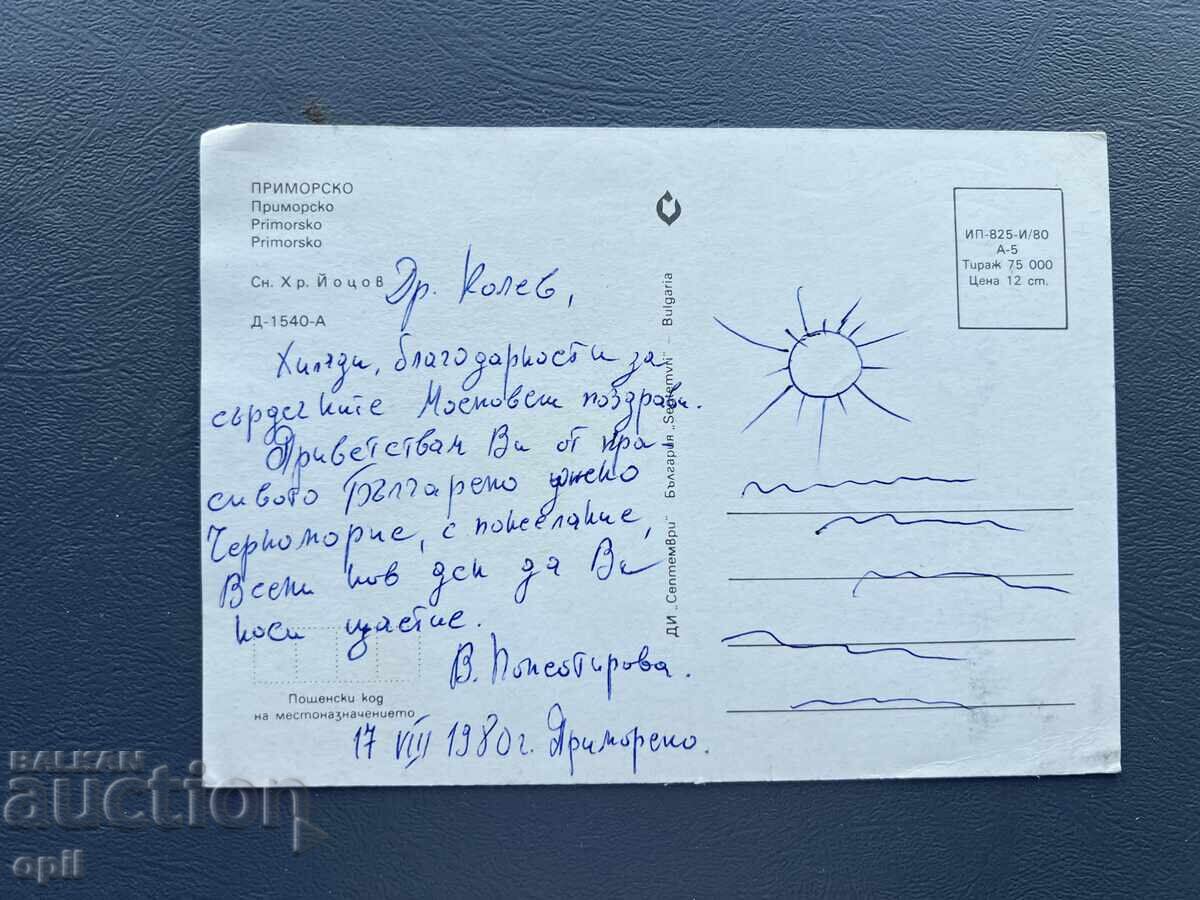 ПРИМОРСКО
Приморско
Primorsko
Primorsko
Сн. Хр. Йоцов
Д-1540-А
Др. Колев,
Хиляди, благодарности за
сърдечните Московски поздрави.
Приветствам Ви от кра-
сивото Българско южно
Черноморие, с пожелание,
Всеки нов ден да Ви
носи щастие.
В.
17 VIII 1980 г. Приморско.
Пощенски код
на местоназначението
ДИ „Септември" България „Septemvri" – Bulgaria
ИП-825-И/80
А-5
Тираж 75 000
Цена 12 ст.
BALKAN
auction
opil